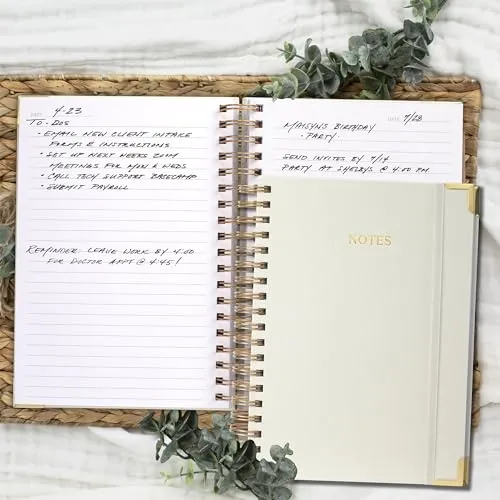 DATE: 4-23
TO-DOS
• EMAIL NEW CLIENT INTAKE
FORMS & INSTRUCTIONS
• SET UP NEXT WEEKS ZOOM
MEETINGS FOR MON & WEDS
• CALL TECH SUPPORT BASECAMP
• SUBMIT PAYROLL
REMINDER: LEAVE WORK BY 4:00
FOR DOCTOR APPT @ 4:45!
DATE:
MAISYN'S BIRTHDAY
• PARTY •
SEND INVITES BY 7/14
PARTY AT SHELBYS @ 4:00 PM
NOTES